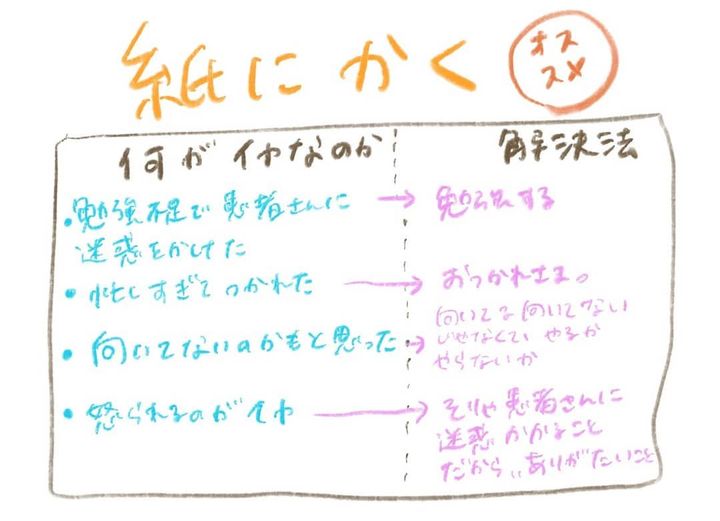 紙にかく
オス
スメ
何がイヤなのか
解決法
・勉強不足で患者さんに
迷惑をかけた
→ 勉強する
・忙しすぎてつかれた
→ おつかれさま。
・向いてないのかもと思った
→ 向いてる向いてない
じゃなくて、やるか
やらないか
・怒られるのがイヤ
→ そりゃ患者さんに
迷惑かかること
だから、ありがたいこと